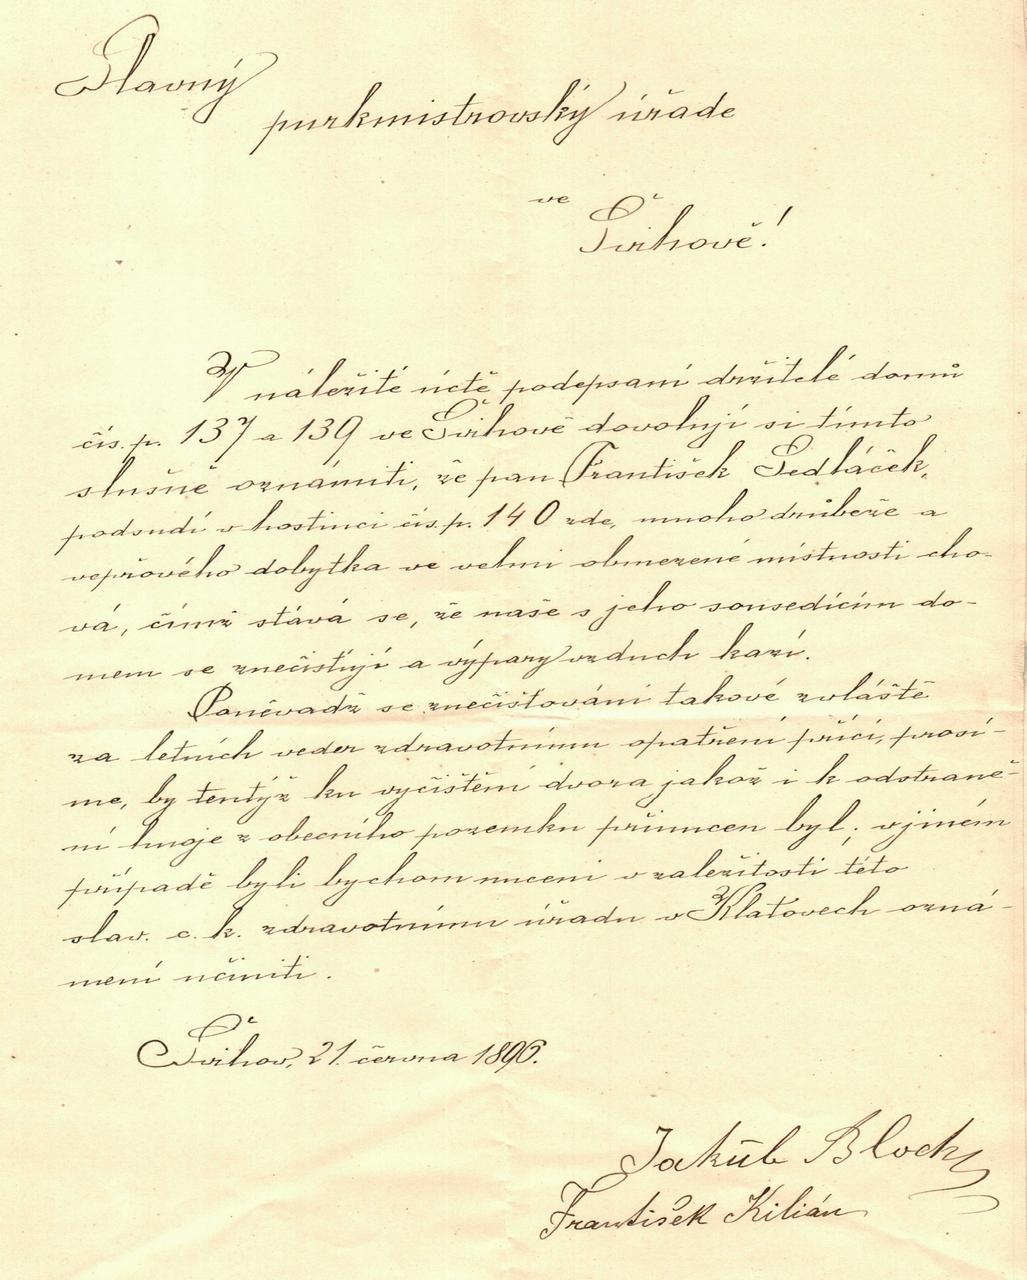 Slavný
purkmistrovský úřade
ve
Švihově!
V náležité úctě podepsaní držitelé domů
čís. p. 137 a 139 ve Švihově dovolují si tímto
slušně oznámiti, že pan František Sedláček,
podsudí v hostinci čís. p. 140 zde, mnoho drůbeže a
vepřového dobytka ve velmi obmezené místnosti cho-
vá, čímž stává se, že naše s jeho sousedícím do-
mem se znečistují a výpary vzduch kazí.
Poněvadž se znečišťování takové zvláště
za letních veder zdravotnímu opatření příčí, prosí-
me, by tentýž ku vyčištění dvora jakož i k odstraně-
ní hnoje z obecního pozemku přinucen byl; v jiném
případě byli bychom nuceni v záležitosti této
slav. c. k. zdravotnímu úřadu v Klatovech ozná-
mení učiniti.
Švihov, 21. června 1896.
Jakub Bloch
František Kilián